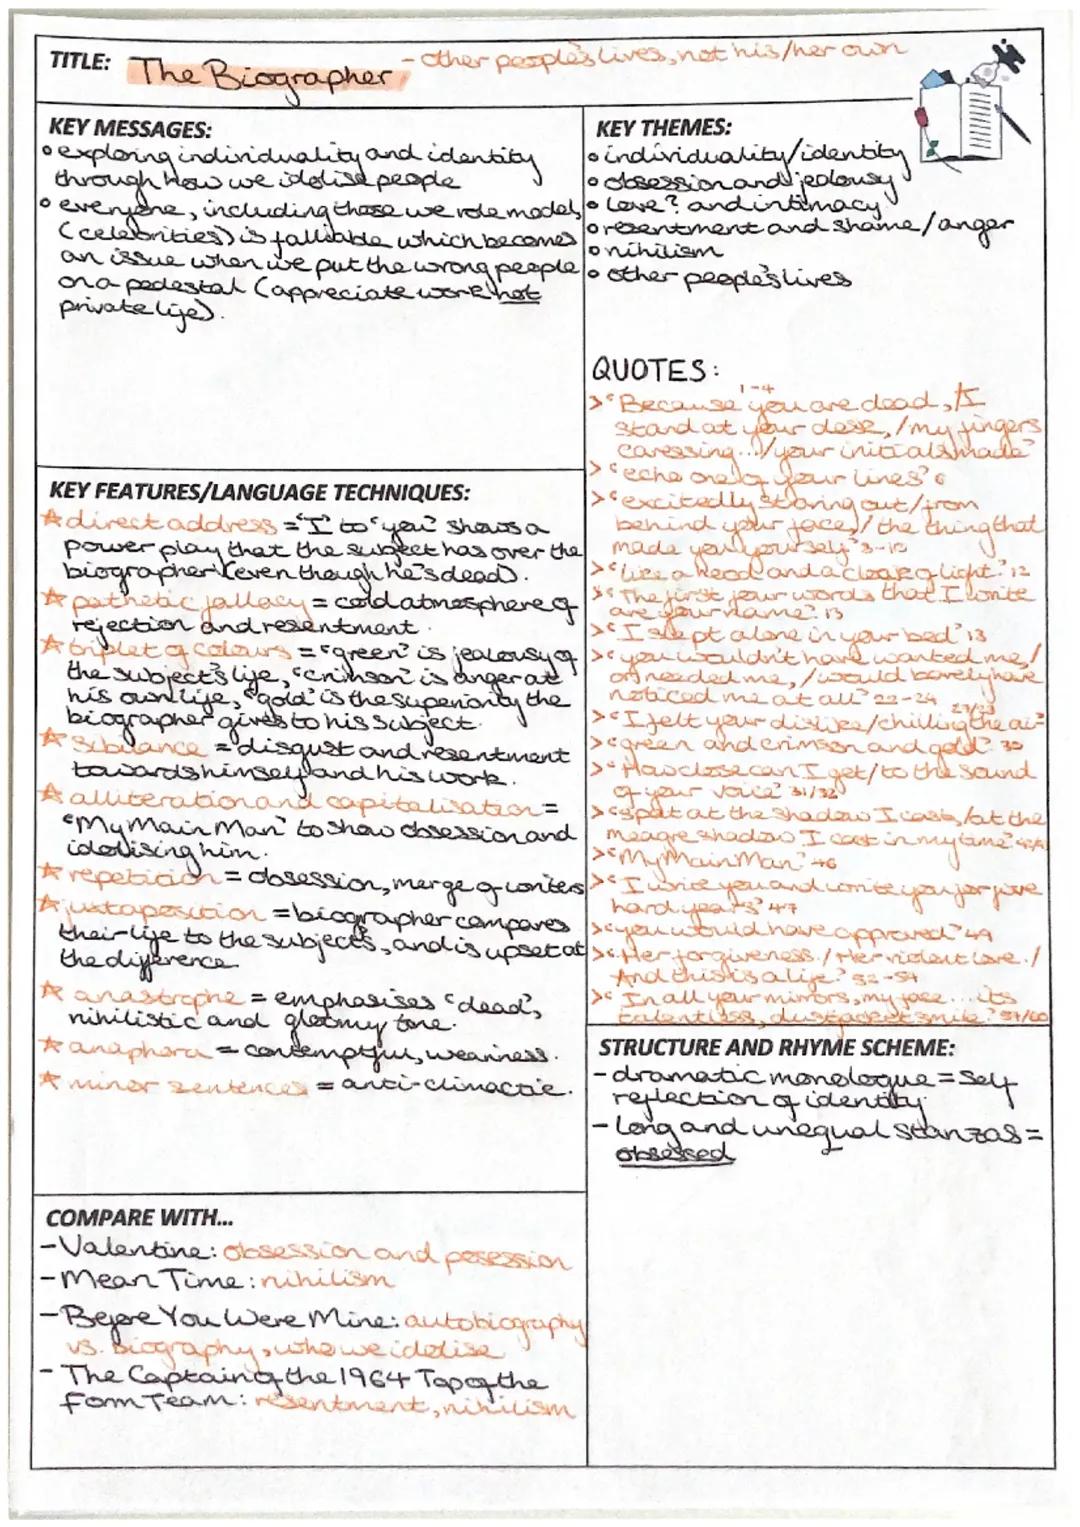 TITLE: The Biographer - other people's lives, not his/her own
KEY MESSAGES:
• exploring individuality and identity
through how we idolise people
• everyone, including those we role model
(celebrities) is falliable which becomes
an issue when we put the wrong people
on a pedestal (appreciate work not
private life).
KEY THEMES:
• individuality/identity
• obsession and jealousy
• love? and intimacy
• resentment and shame/anger
• nihilism
• other people's lives
QUOTES:
1-4
>"Because you are dead,/I
stand at your desk,/my fingers
caressing.../your initials made"
>"echo one of your lines" 6
>"excitedly staring out/from
behind your face,/the thing that
made you yourself" 8-10
>"like a hood and a cloak of light." 12
>"The first four words that I write
are your name." 13
>"I slept alone in your bed" 13
>"you wouldn't have wanted me,/
or needed me,/would barely have
noticed me at all" 22-24
>"I felt your dislike/chilling the air"
>"green and crimson and gold" 30
>"How close can I get/to the sound
of your voice" 31/32
>"spat at the shadow I cast,/at the
meagre shadow I cast in my time"
>"My Main Man" 46
>"I write you and write you for five
hard years" 47
>"you would have approved" 49
>"Her forgiveness./Her violent love./
And this is a life." 52-54
>"In all your mirrors, my face...its
talentless, dustjacket smile." 57/60
KEY FEATURES/LANGUAGE TECHNIQUES:
☆ direct address = "I" to "you" shows a
power play that the subject has over the
biographer (even though he's dead).
☆ pathetic fallacy = cold atmosphere of
rejection and resentment.
☆ triplet of colours = "green" is jealousy of
the subject's life, "crimson" is anger at
his own life, "gold" is the superiority the
biographer gives to his subject.
☆ sibilance = disgust and resentment
towards himself and his work.
☆ alliteration and capitalisation =
"My Main Man" to show obsession and
idolising him.
☆ repetition = obsession, merge of writers
☆ juxtaposition = biographer compares
their life to the subjects, and is upset at
the difference
☆ anastrophe = emphasises "dead",
nihilistic and gloomy tone.
☆ anaphora = contemptful, weariness.
☆ minor sentences = anti-climactic.
STRUCTURE AND RHYME SCHEME:
- dramatic monologue = self
reflection of identity
- long and unequal stanzas =
obsessed
COMPARE WITH...
- Valentine: obsession and posession
- Mean Time: nihilism
- Before You Were Mine: autobiography
vs. biography, who we idolise
- The Captain of the 1964 Top of the
Form Team: resentment, nihilism